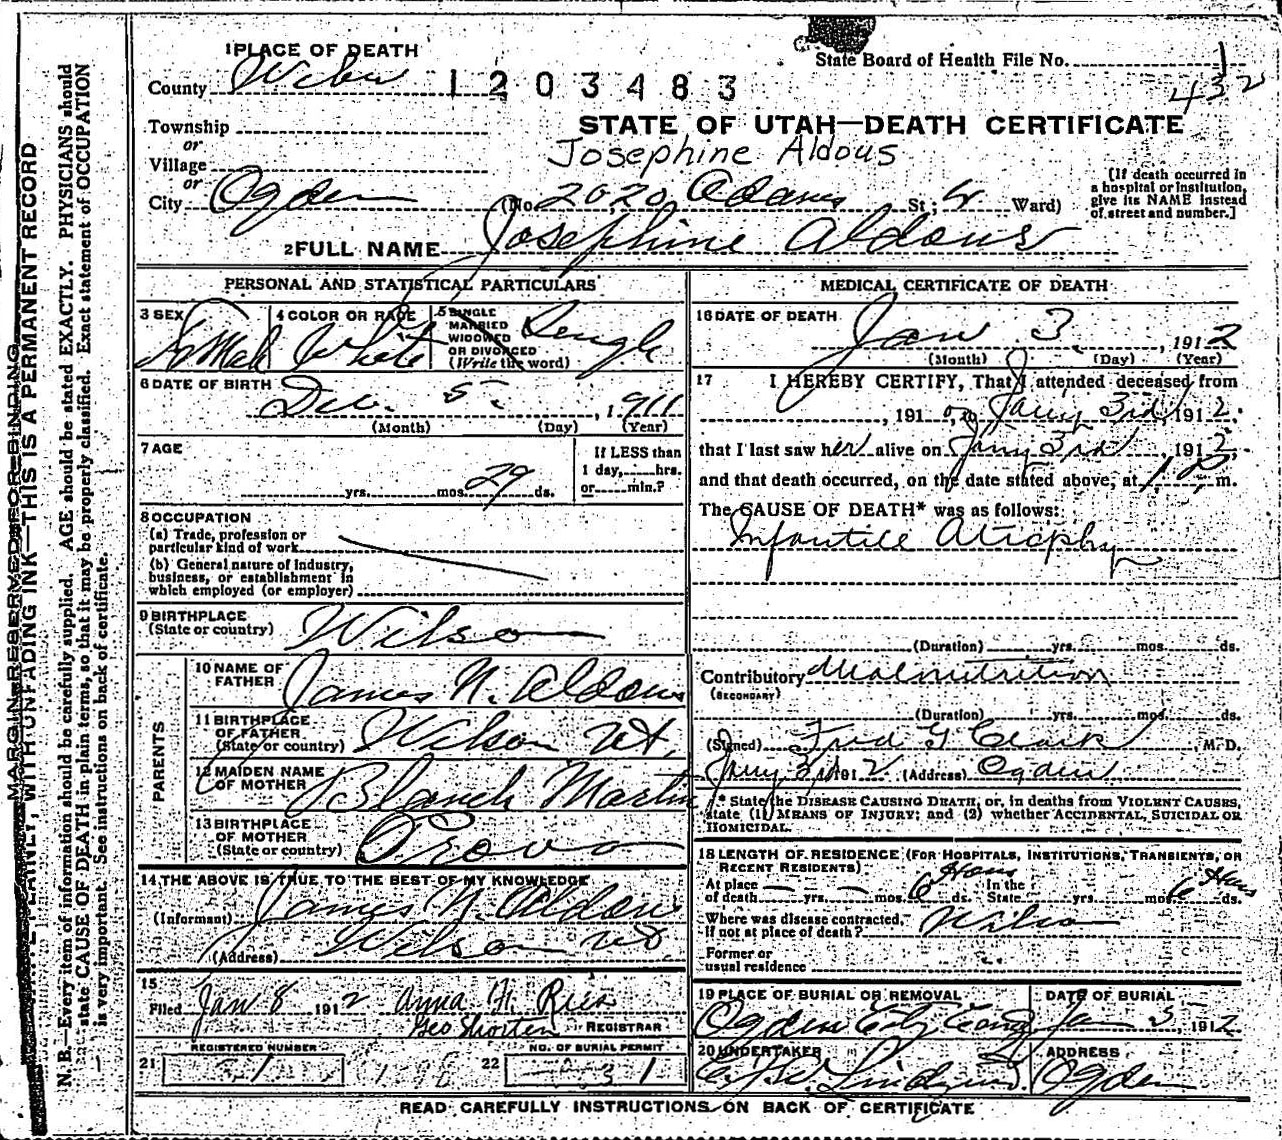 1 PLACE OF DEATH
State Board of Health File No. 1
County Weber 1203483
432
Township
or
Village
or
City Ogden
STATE OF UTAH—DEATH CERTIFICATE
Josephine Aldous
(No. 2020 Adams St; 4 Ward)
[If death occurred in
a hospital or institution,
give its NAME instead
of street and number.]
2 FULL NAME Josephine Aldous
PERSONAL AND STATISTICAL PARTICULARS
3 SEX
4 COLOR OR RACE White
5 SINGLE
MARRIED
WIDOWED
OR DIVORCED
(Write the word) Single
6 DATE OF BIRTH
Dec. 5, 1911
(Month) (Day) (Year)
7 AGE
yrs. mos. 29 ds.
If LESS than
1 day, hrs.
or min.?
8 OCCUPATION
(a) Trade, profession or
particular kind of work
(b) General nature of industry,
business, or establishment in
which employed (or employer)
9 BIRTHPLACE
(State or country) Wilson
PARENTS
10 NAME OF
FATHER James N. Aldous
11 BIRTHPLACE
OF FATHER
(State or country) Wilson Ut.
12 MAIDEN NAME
OF MOTHER Blanch Martin
13 BIRTHPLACE
OF MOTHER
(State or country) Provo
14 THE ABOVE IS TRUE TO THE BEST OF MY KNOWLEDGE
(Informant) James N. Aldous
(Address) Wilson Ut
15
Filed Jan 8 1912 Anna H. Rich
Geo Shorten REGISTRAR
REGISTERED NUMBER
21 1
NO. OF BURIAL PERMIT
22 31
MEDICAL CERTIFICATE OF DEATH
16 DATE OF DEATH
Jan 3, 1912
(Month) (Day) (Year)
17 I HEREBY CERTIFY, That I attended deceased from
, 191 on Jany 3rd, 1912.
that I last saw her alive on Jany 3rd 1912,
and that death occurred, on the date stated above, at 1 P. m.
The CAUSE OF DEATH* was as follows:
Infantile Atrophy
(Duration) yrs. mos. ds.
Contributory Malnutrition
(SECONDARY)
(Duration) yrs. mos. ds.
(Signed) Fred G Clark, M. D.
Jany 3rd 1912 (Address) Ogden
* State the DISEASE CAUSING DEATH, or, in deaths from VIOLENT CAUSES,
state (1) MEANS OF INJURY; and (2) whether ACCIDENTAL, SUICIDAL OR
HOMICIDAL.
18 LENGTH OF RESIDENCE (FOR HOSPITALS, INSTITUTIONS, TRANSIENTS, OR
RECENT RESIDENTS)
At place
of death yrs. mos. 6 Hours ds. In the
State yrs. mos. 6 Hours ds.
Where was disease contracted,
if not at place of death? Wilson
Former or
usual residence
19 PLACE OF BURIAL OR REMOVAL
Ogden City Cemy
DATE OF BURIAL
Jan 5, 1912
20 UNDERTAKER
Lindquist
ADDRESS
Ogden
READ CAREFULLY INSTRUCTIONS ON BACK OF CERTIFICATE
MARGIN RESERVED FOR BINDING
WRITE PLAINLY, WITH UNFADING INK—THIS IS A PERMANENT RECORD
N. B.—Every item of information should be carefully supplied. AGE should be stated EXACTLY. PHYSICIANS should
state CAUSE OF DEATH in plain terms, so that it may be properly classified. Exact statement of OCCUPATION
is very important. See instructions on back of certificate.